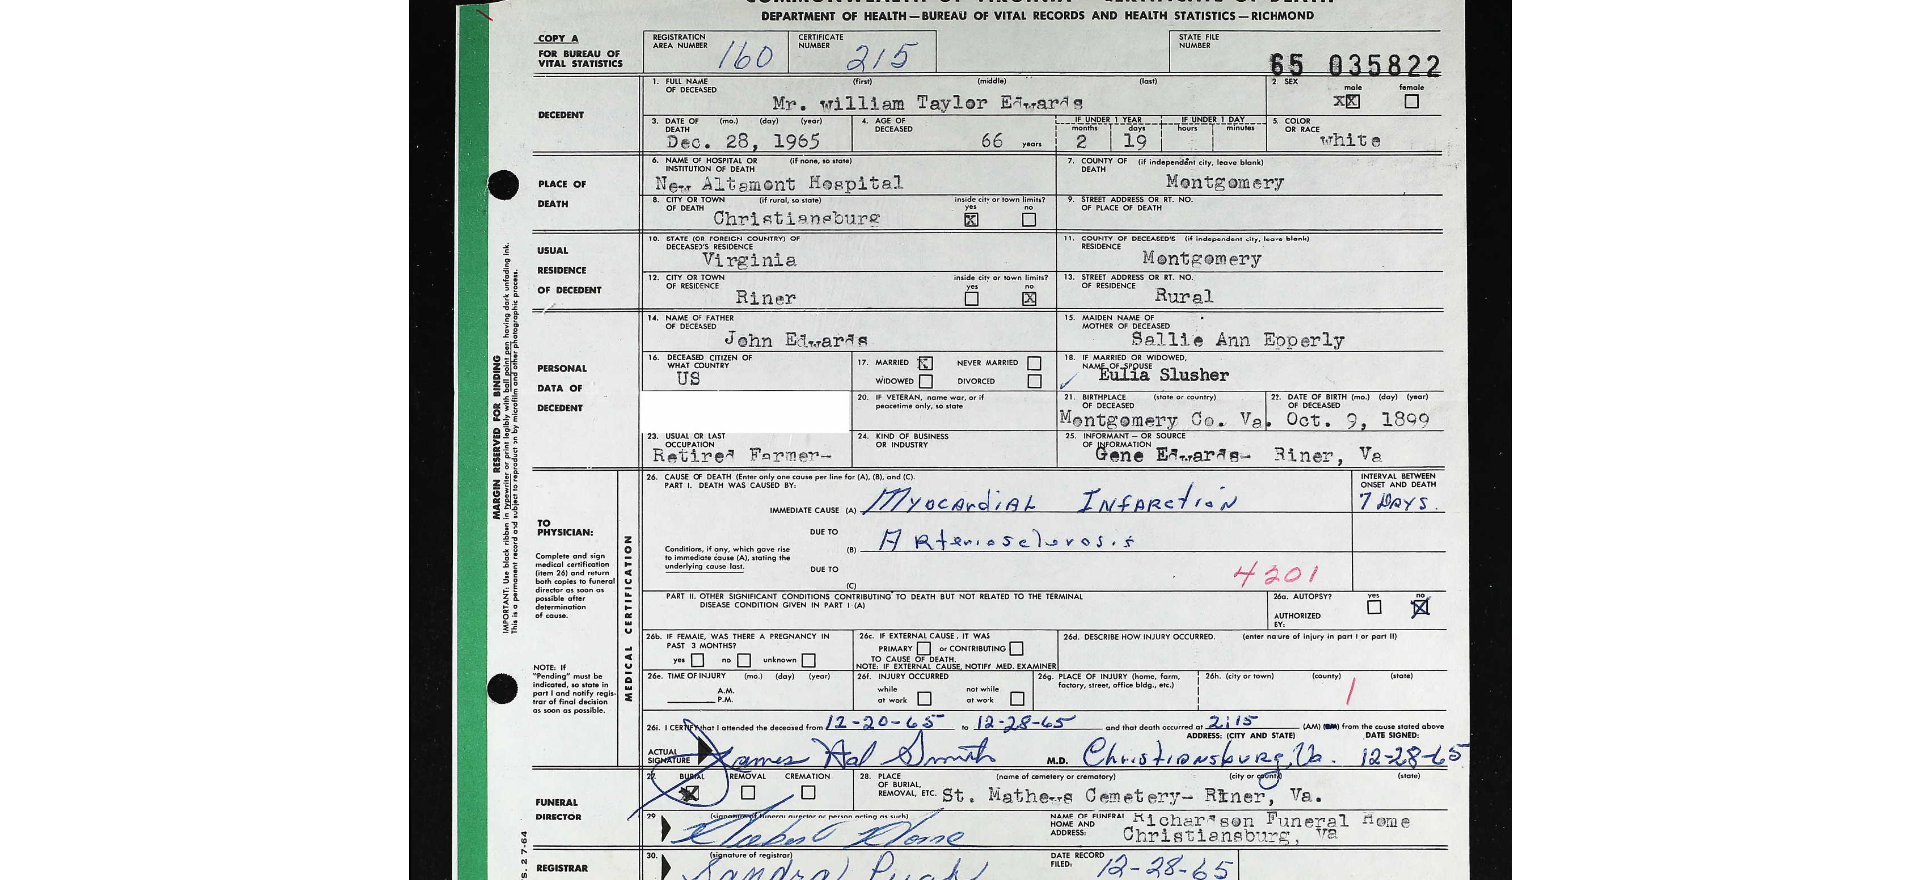 DEPARTMENT OF HEALTH—BUREAU OF VITAL RECORDS AND HEALTH STATISTICS—RICHMOND
COPY A
FOR BUREAU OF VITAL STATISTICS
REGISTRATION AREA NUMBER 160
CERTIFICATE NUMBER 215
STATE FILE NUMBER 65 035822
DECEDENT
1. FULL NAME OF DECEASED (first) (middle) (last)
Mr. william Taylor Edwards
2. SEX male XX female
3. DATE OF DEATH (mo.) (day) (year)
Dec. 28, 1965
4. AGE OF DECEASED 66 years
IF UNDER 1 YEAR months 2 days 19
IF UNDER 1 DAY hours minutes
5. COLOR OR RACE white
PLACE OF DEATH
6. NAME OF HOSPITAL OR INSTITUTION OF DEATH (if none, so state)
New Altamont Hospital
7. COUNTY OF DEATH (if independent city, leave blank)
Montgomery
8. CITY OR TOWN OF DEATH (if rural, so state)
Christiansburg
inside city or town limits? yes X no
9. STREET ADDRESS OR RT. NO. OF PLACE OF DEATH
USUAL RESIDENCE OF DECEDENT
10. STATE (OR FOREIGN COUNTRY) OF DECEASED'S RESIDENCE
Virginia
11. COUNTY OF DECEASED'S RESIDENCE (if independent city, leave blank)
Montgomery
12. CITY OR TOWN OF RESIDENCE
Riner
inside city or town limits? yes no X
13. STREET ADDRESS OR RT. NO. OF RESIDENCE
Rural
PERSONAL DATA OF DECEDENT
14. NAME OF FATHER OF DECEASED
John Edwards
15. MAIDEN NAME OF MOTHER OF DECEASED
Sallie Ann Epperly
16. DECEASED CITIZEN OF WHAT COUNTRY
US
17. MARRIED X NEVER MARRIED
WIDOWED DIVORCED
18. IF MARRIED OR WIDOWED, NAME OF SPOUSE
Eulia Slusher
20. IF VETERAN, name war, or if peacetime only, so state
21. BIRTHPLACE OF DECEASED (state or country)
Montgomery Co. Va.
22. DATE OF BIRTH (mo.) (day) (year) OF DECEASED
Oct. 9, 1899
23. USUAL OR LAST OCCUPATION
Retired Farmer-
24. KIND OF BUSINESS OR INDUSTRY
25. INFORMANT — OR SOURCE OF INFORMATION
Gene Edwards- Riner, Va
MARGIN RESERVED FOR BINDING
IMPORTANT: Use black ribbon in typewriter or print legibly with ball point pen having dark unfading ink.
This is a permanent record and subject to reproduction by microfilm and other photographic process.
TO PHYSICIAN:
Complete and sign medical certification (item 26) and return both copies to funeral director as soon as possible after determination of cause.
NOTE: If "Pending" must be indicated, so state in part I and notify registrar of final decision as soon as possible.
MEDICAL CERTIFICATION
26. CAUSE OF DEATH (Enter only one cause per line for (A), (B), and (C).
PART I. DEATH WAS CAUSED BY:
INTERVAL BETWEEN ONSET AND DEATH
IMMEDIATE CAUSE (A) Myocardial Infarction 7 DAYS.
DUE TO
(B) Arteriosclerosis
Conditions, if any, which gave rise to immediate cause (A), stating the underlying cause last.
DUE TO
(C)
4201
PART II. OTHER SIGNIFICANT CONDITIONS CONTRIBUTING TO DEATH BUT NOT RELATED TO THE TERMINAL DISEASE CONDITION GIVEN IN PART I (A)
26a. AUTOPSY? yes no X
AUTHORIZED BY:
26b. IF FEMALE, WAS THERE A PREGNANCY IN PAST 3 MONTHS?
yes no unknown
26c. IF EXTERNAL CAUSE, IT WAS
PRIMARY or CONTRIBUTING
TO CAUSE OF DEATH.
NOTE: IF EXTERNAL CAUSE, NOTIFY MED. EXAMINER
26d. DESCRIBE HOW INJURY OCCURRED. (enter nature of injury in part I or part II)
26e. TIME OF INJURY (mo.) (day) (year)
A.M.
P.M.
26f. INJURY OCCURRED
while at work not while at work
26g. PLACE OF INJURY (home, farm, factory, street, office bldg., etc.)
26h. (city or town) (county) (state)
26i. I CERTIFY that I attended the deceased from 12-20-65 to 12-28-65 and that death occurred at 2:15 (AM) from the cause stated above
ADDRESS: (CITY AND STATE) DATE SIGNED:
ACTUAL SIGNATURE James Hal Smith M.D. Christiansburg, Va. 12-28-65
FUNERAL DIRECTOR
27. BURIAL X REMOVAL CREMATION
28. PLACE OF BURIAL, REMOVAL, ETC. (name of cemetery or crematory) (city or county) (state)
St. Mathews Cemetery- Riner, Va.
29 (signature of funeral director or person acting as such)
NAME OF FUNERAL HOME AND ADDRESS:
Richardson Funeral Home
Christiansburg, Va
REGISTRAR
30. (signature of registrar)
Sandra
DATE RECORD FILED: 12-28-65